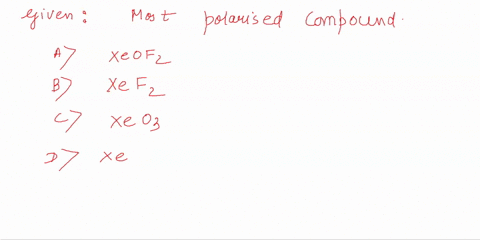 Given: Most polarised compound.
A> XeOF2
B> XeF2
C> XeO3
D> Xe